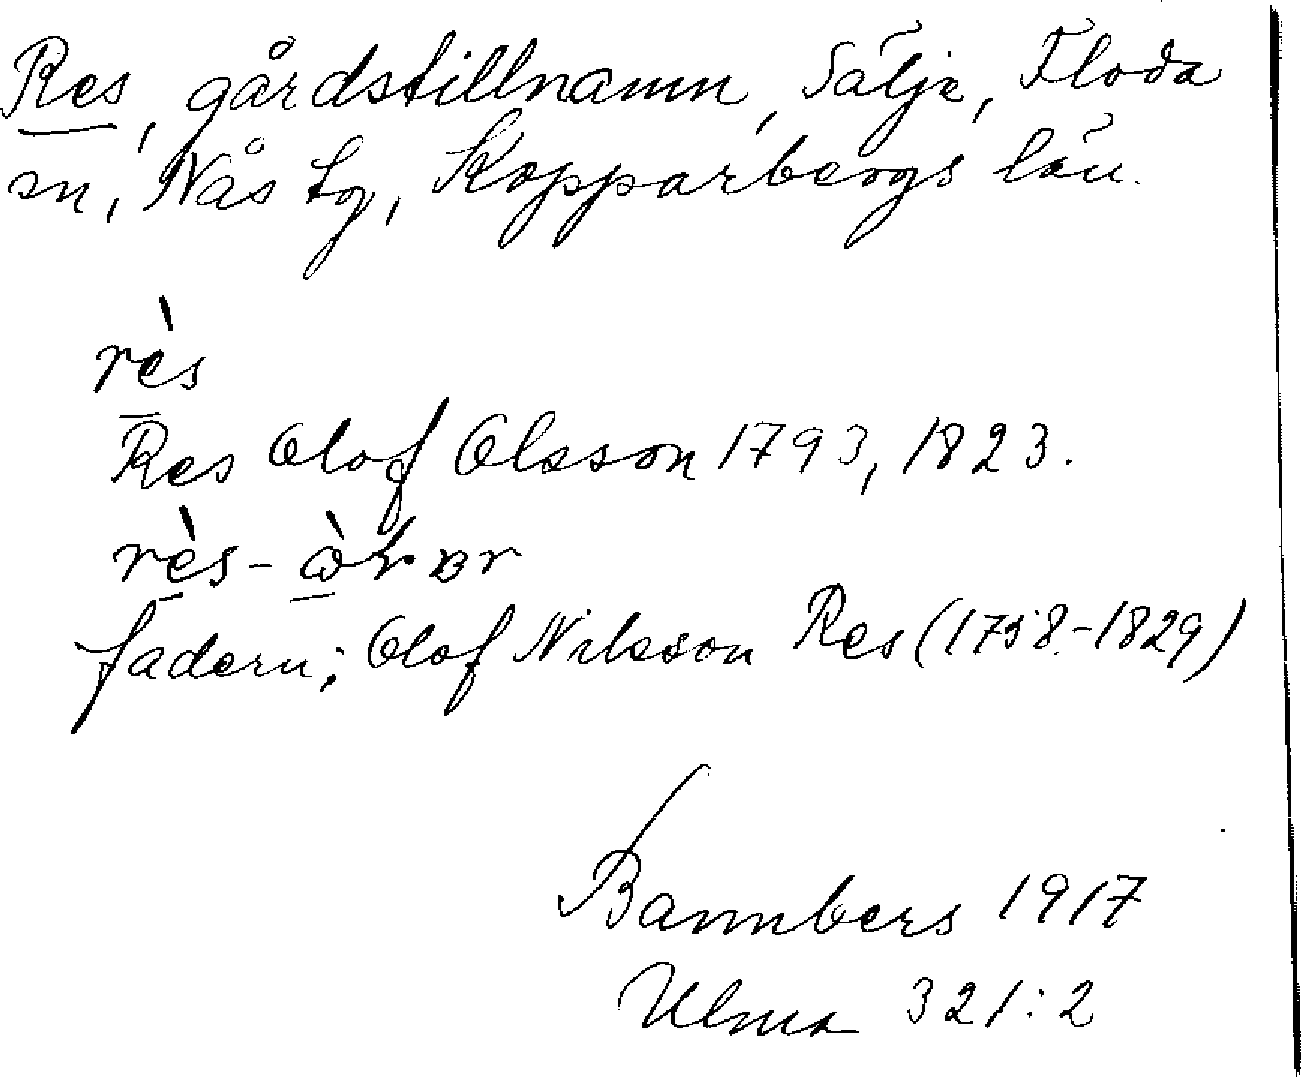 Res, gårdstillnamn, Sälja, Floda
sn, Nås tg, Kopparbergs län.
rès
Res Olof Olsson 1793, 1823.
rès-
fadern; Olof Nilsson Res (1758-1829)
Bannbers 1917
Ulma 321:2